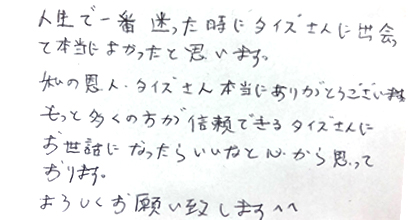 人生で一番迷った時にタイズさんに出会っ
て本当によかったと思います。
私の恩人・タイズさん本当にありがとうございます
もっと多くの方が信頼できるタイズさんに
お世話になったらいいなと心から思って
おります。
よろしくお願い致します^^